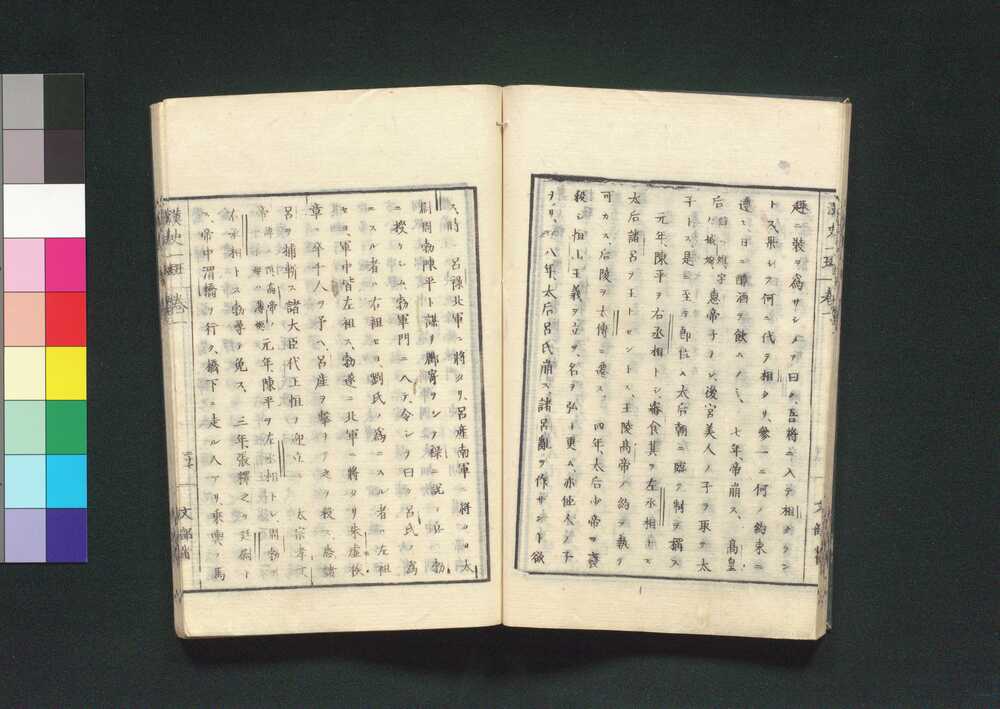 趣ニ装ヲ爲サシメテ曰ク、吾將ニ入テ相タラン
トス果シテ何ニ代テ相タリ、參一ニ何ノ約束ニ
遵ヒ日ニ醇酒ヲ飲ヘノミ、七年帝崩ス、高皇
后 惠帝子ナシ、後宮美人ノ子ヲ取テ太
子トス是ニ至テ即位ス太后朝ニ臨テ制ヲ稱ス
元年、陳平ヲ右丞相トシ、審食其ヲ左丞相トス
太后諸呂ヲ王トセントス、王陵高帝ノ約ヲ執テ
可カス、后陵ヲ太傅ニ遷ス 四年、太后少帝ヲ
殺シ恒山王義ヲ立ツ、名ヲ弘ト更ム、亦他人ノ子
ナリ、八年、太后呂氏崩ス、諸呂亂ヲ作サント欲
ス、時ニ呂禄北軍ニ將タリ、呂産南軍ニ將タリ太
尉周勃陳平ト謀リ酈寄ヲシテ禄ニ説テ兵ヲ勃
ニ授ケシム勃軍門ニ入テ、令シテ曰ク呂氏ノ爲
ニスル者ハ右袒セヨ、劉氏ノ爲ニスル者ハ左袒
セヨ、軍中皆左袒ス、勃遂ニ北軍ニ將タリ朱虚侯
章ニ卒千人ヲ予ヘ、呂産ヲ撃テ之ヲ殺ス、悉諸
呂ヲ捕斬ス諸大臣代王恒ヲ迎立ツ 太宗孝文
帝 元年、陳平ヲ左丞相トシ、周勃ヲ
右丞相トス勃尋テ免ス 三年、張釋之ヲ廷尉ト
ス、帝中渭橋ヲ行ク、橋下ニ走ル人アリ、乘輿ノ馬
漢史一班 卷一
文部省